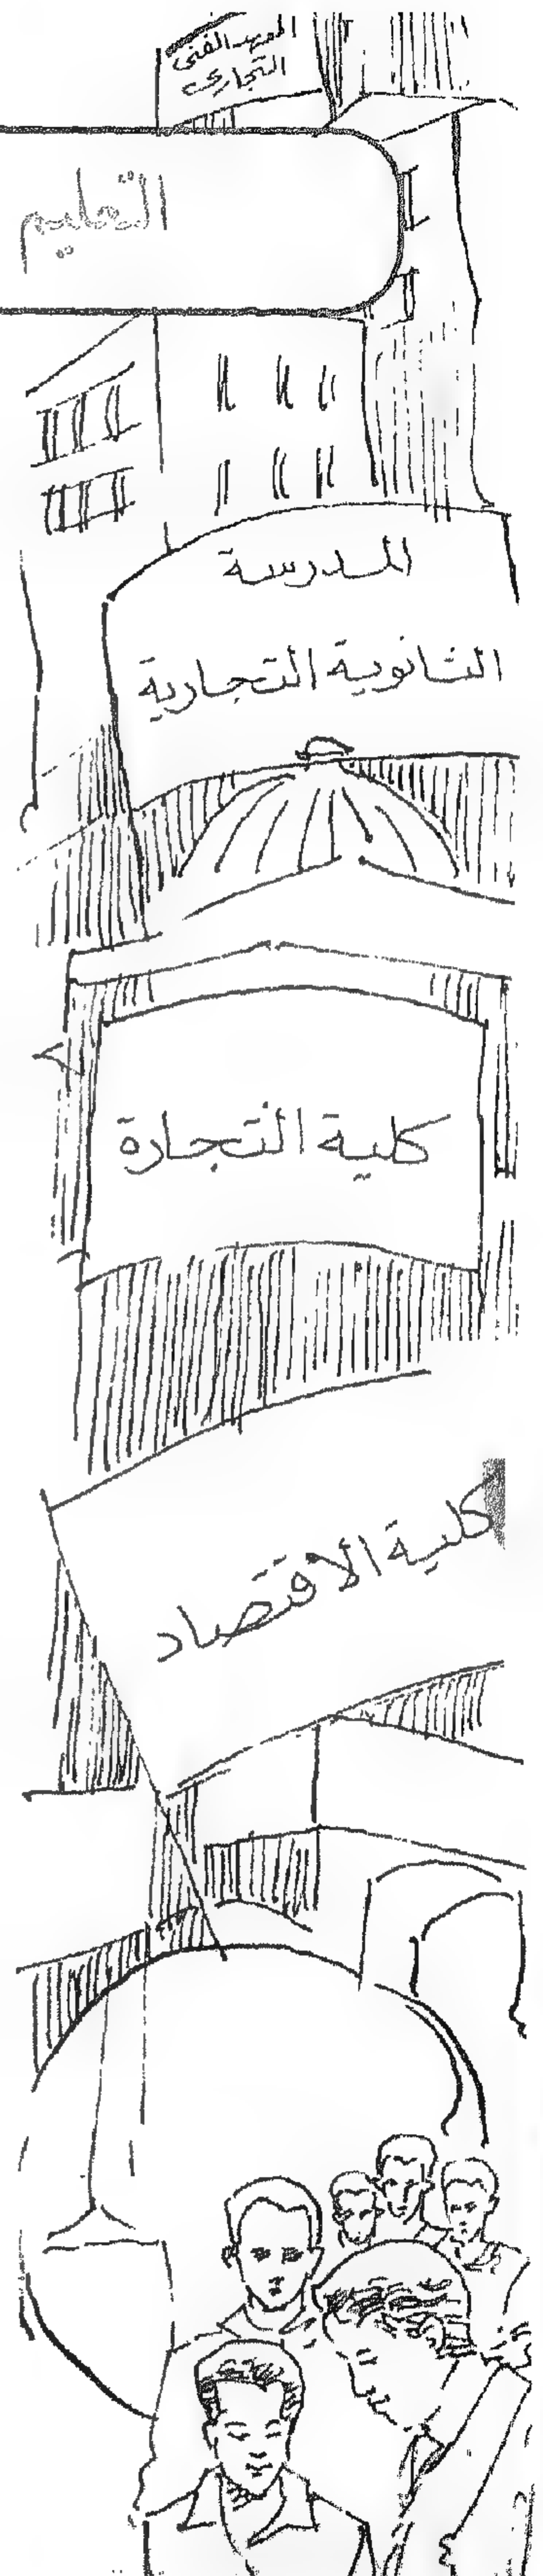 المعهد الفنى
التجارى
التعليم
المدرسة
الثانوية التجارية
كلية التجارة
كلية الاقتصاد